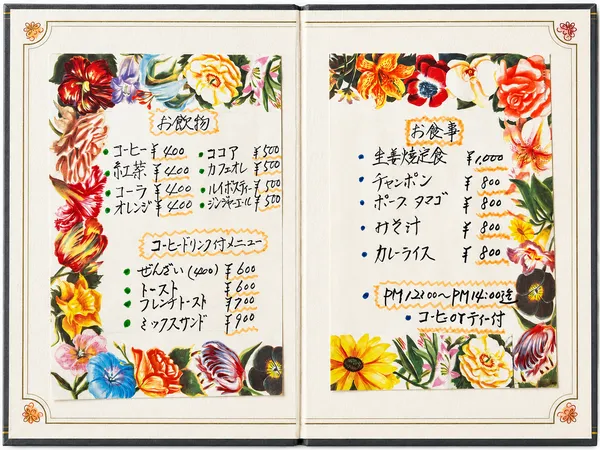 お飲物
コーヒー ¥400
紅茶 ¥400
コーラ ¥400
オレンジ ¥400
ココア ¥500
カフェオレ ¥500
ルイボスティー ¥500
ジンジャーエール ¥500
コーヒードリンク付メニュー
ぜんざい(400) ¥600
トースト ¥600
フレンチトースト ¥700
ミックスサンド ¥900
お食事
生姜焼定食 ¥1,000
チャンポン ¥800
ポーク タマゴ ¥800
みそ汁 ¥800
カレーライス ¥800
PM12:00〜PM14:00迄
コーヒorティー付